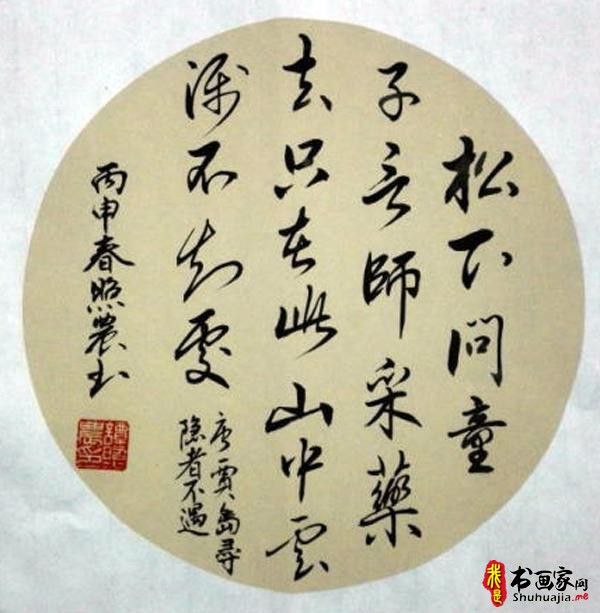 松下问童
子言師采藥
去只在此山中雲
深不知處
唐賈島尋
隐者不遇
丙申春照農书
我是书画家网
Shuhuajia.me